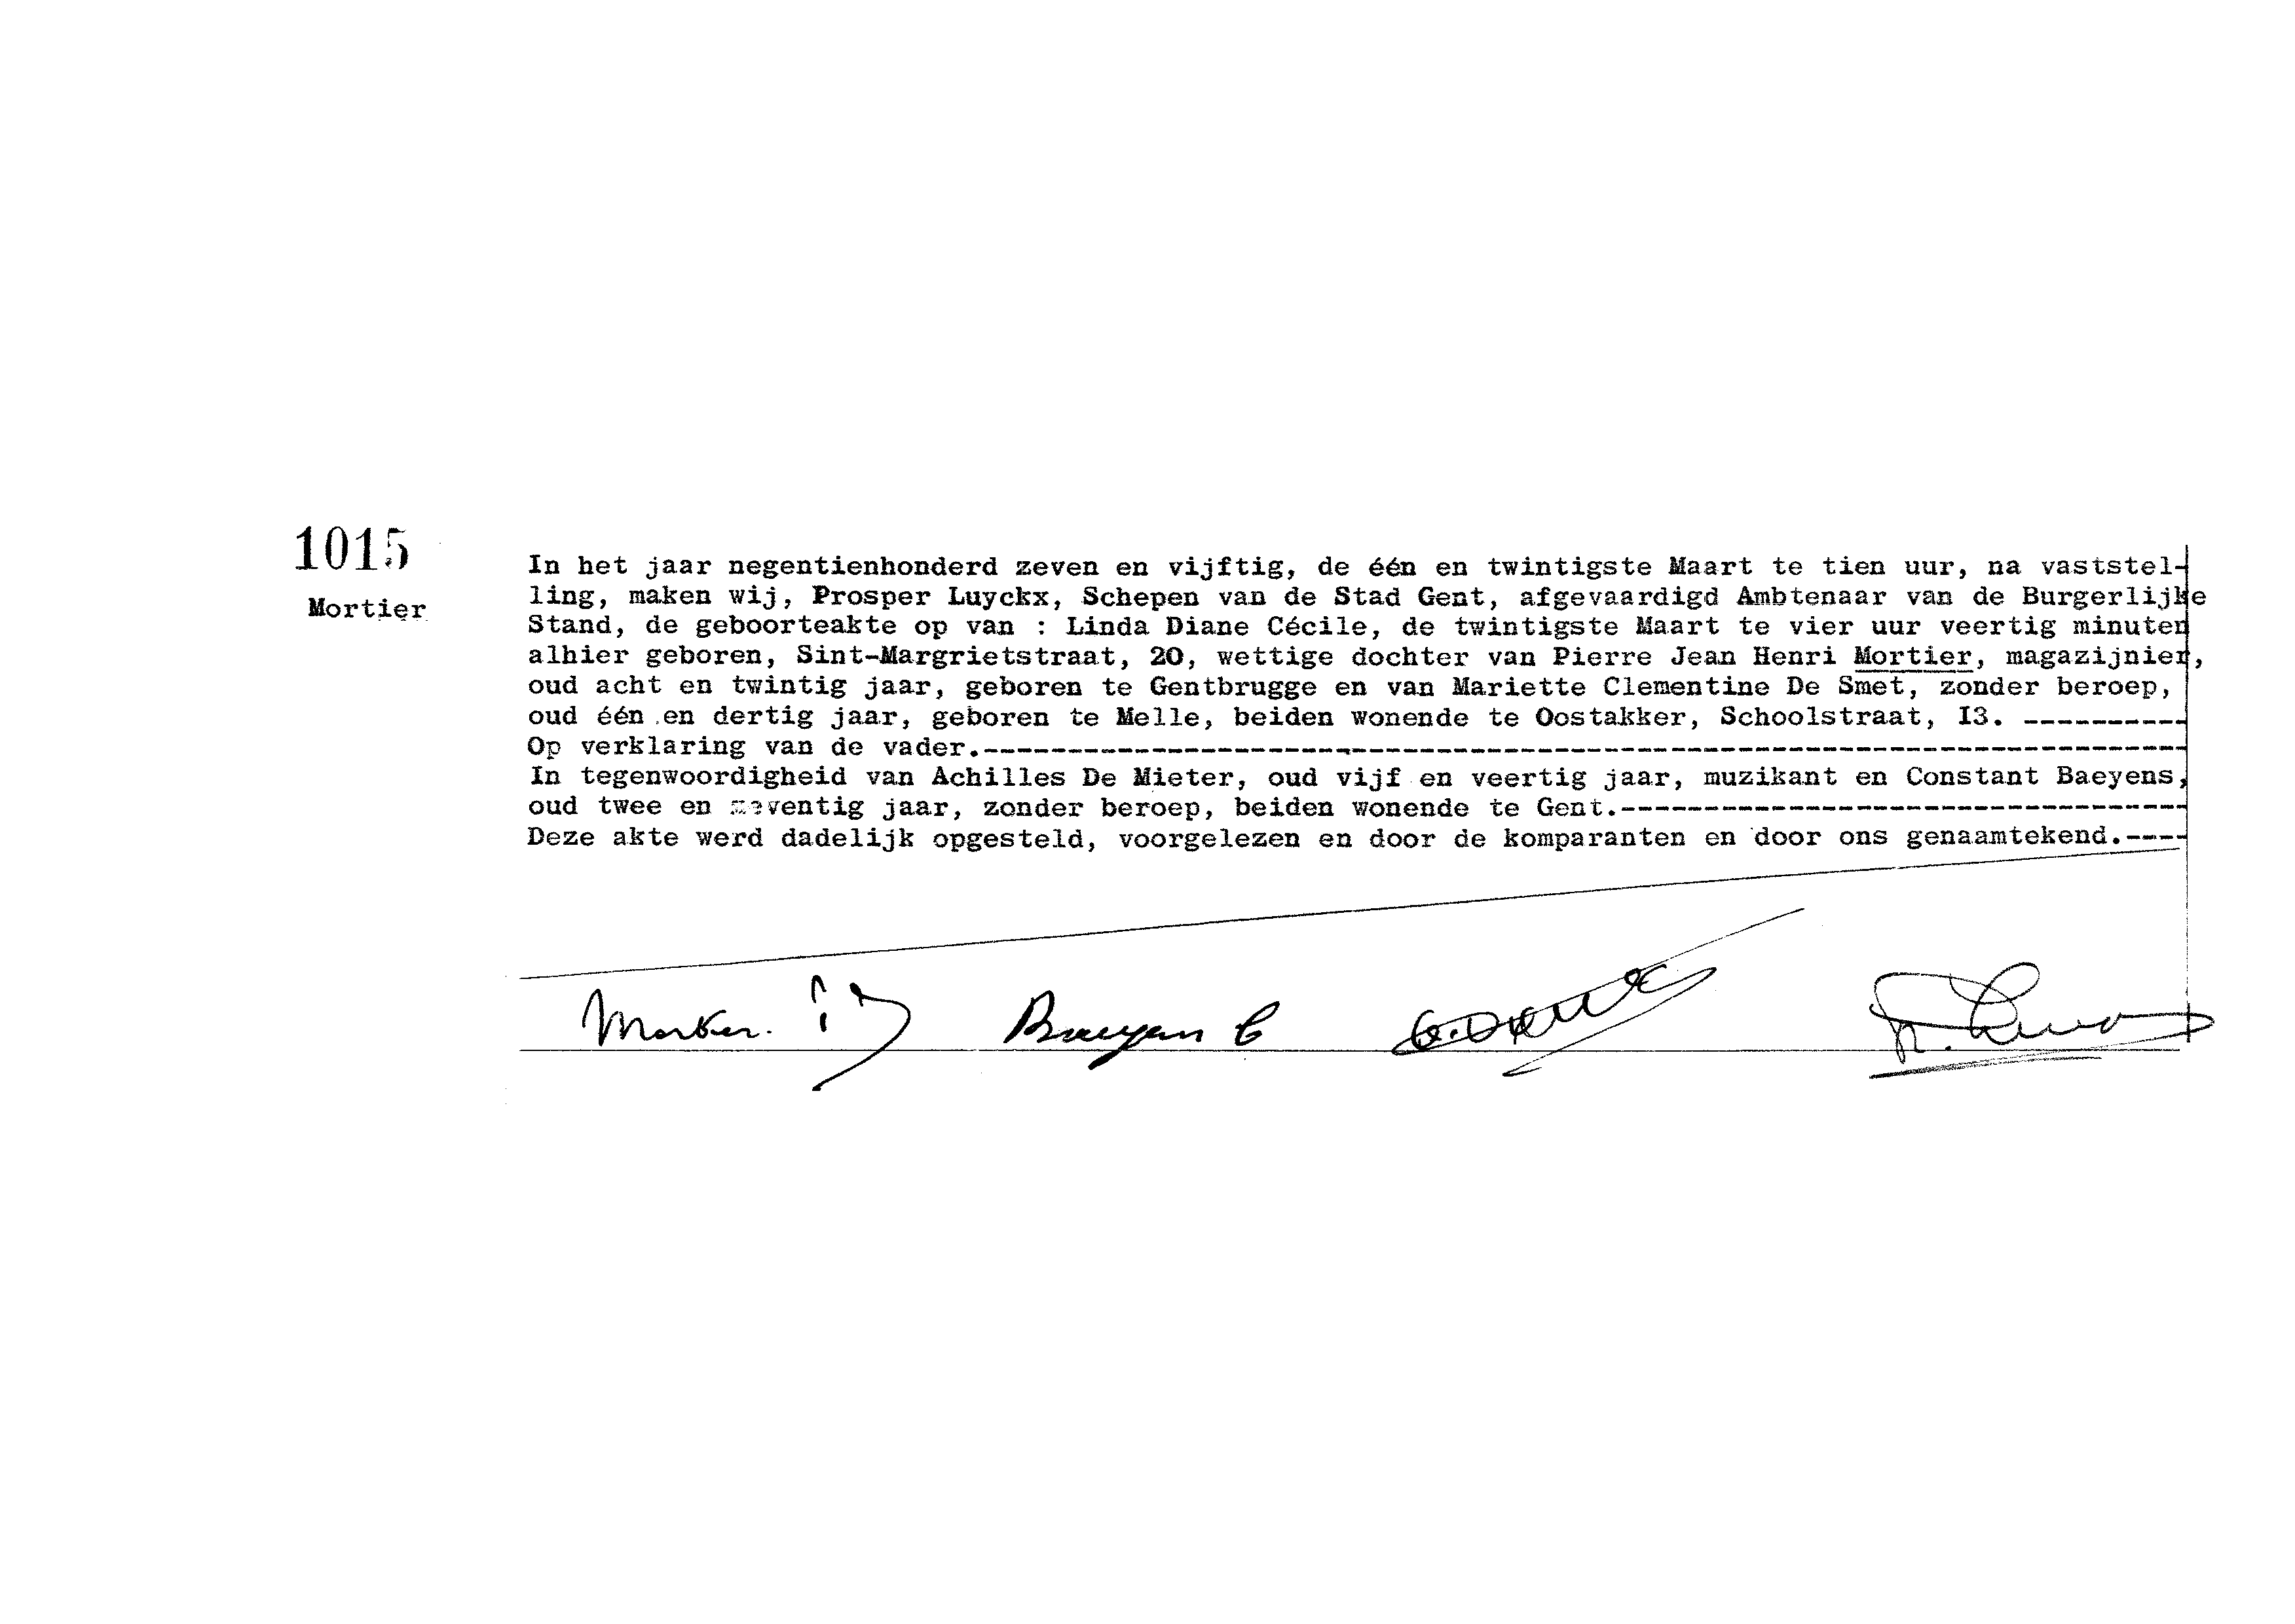 1015
Mortier
In het jaar negentienhonderd zeven en vijftig, de één en twintigste Maart te tien uur, na vaststel-
ling, maken wij, Prosper Luyckx, Schepen van de Stad Gent, afgevaardigd Ambtenaar van de Burgerlijke
Stand, de geboorteakte op van : Linda Diane Cécile, de twintigste Maart te vier uur veertig minuten
alhier geboren, Sint-Margrietstraat, 20, wettige dochter van Pierre Jean Henri Mortier, magazijnier,
oud acht en twintig jaar, geboren te Gentbrugge en van Mariette Clementine De Smet, zonder beroep,
oud één en dertig jaar, geboren te Melle, beiden wonende te Oostakker, Schoolstraat, I3. ----------
Op verklaring van de vader.------------------------------------------------------------------------
In tegenwoordigheid van Achilles De Mieter, oud vijf en veertig jaar, muzikant en Constant Baeyens,
oud twee en zeventig jaar, zonder beroep, beiden wonende te Gent.----------------------------------
Deze akte werd dadelijk opgesteld, voorgelezen en door de komparanten en door ons genaamtekend.----